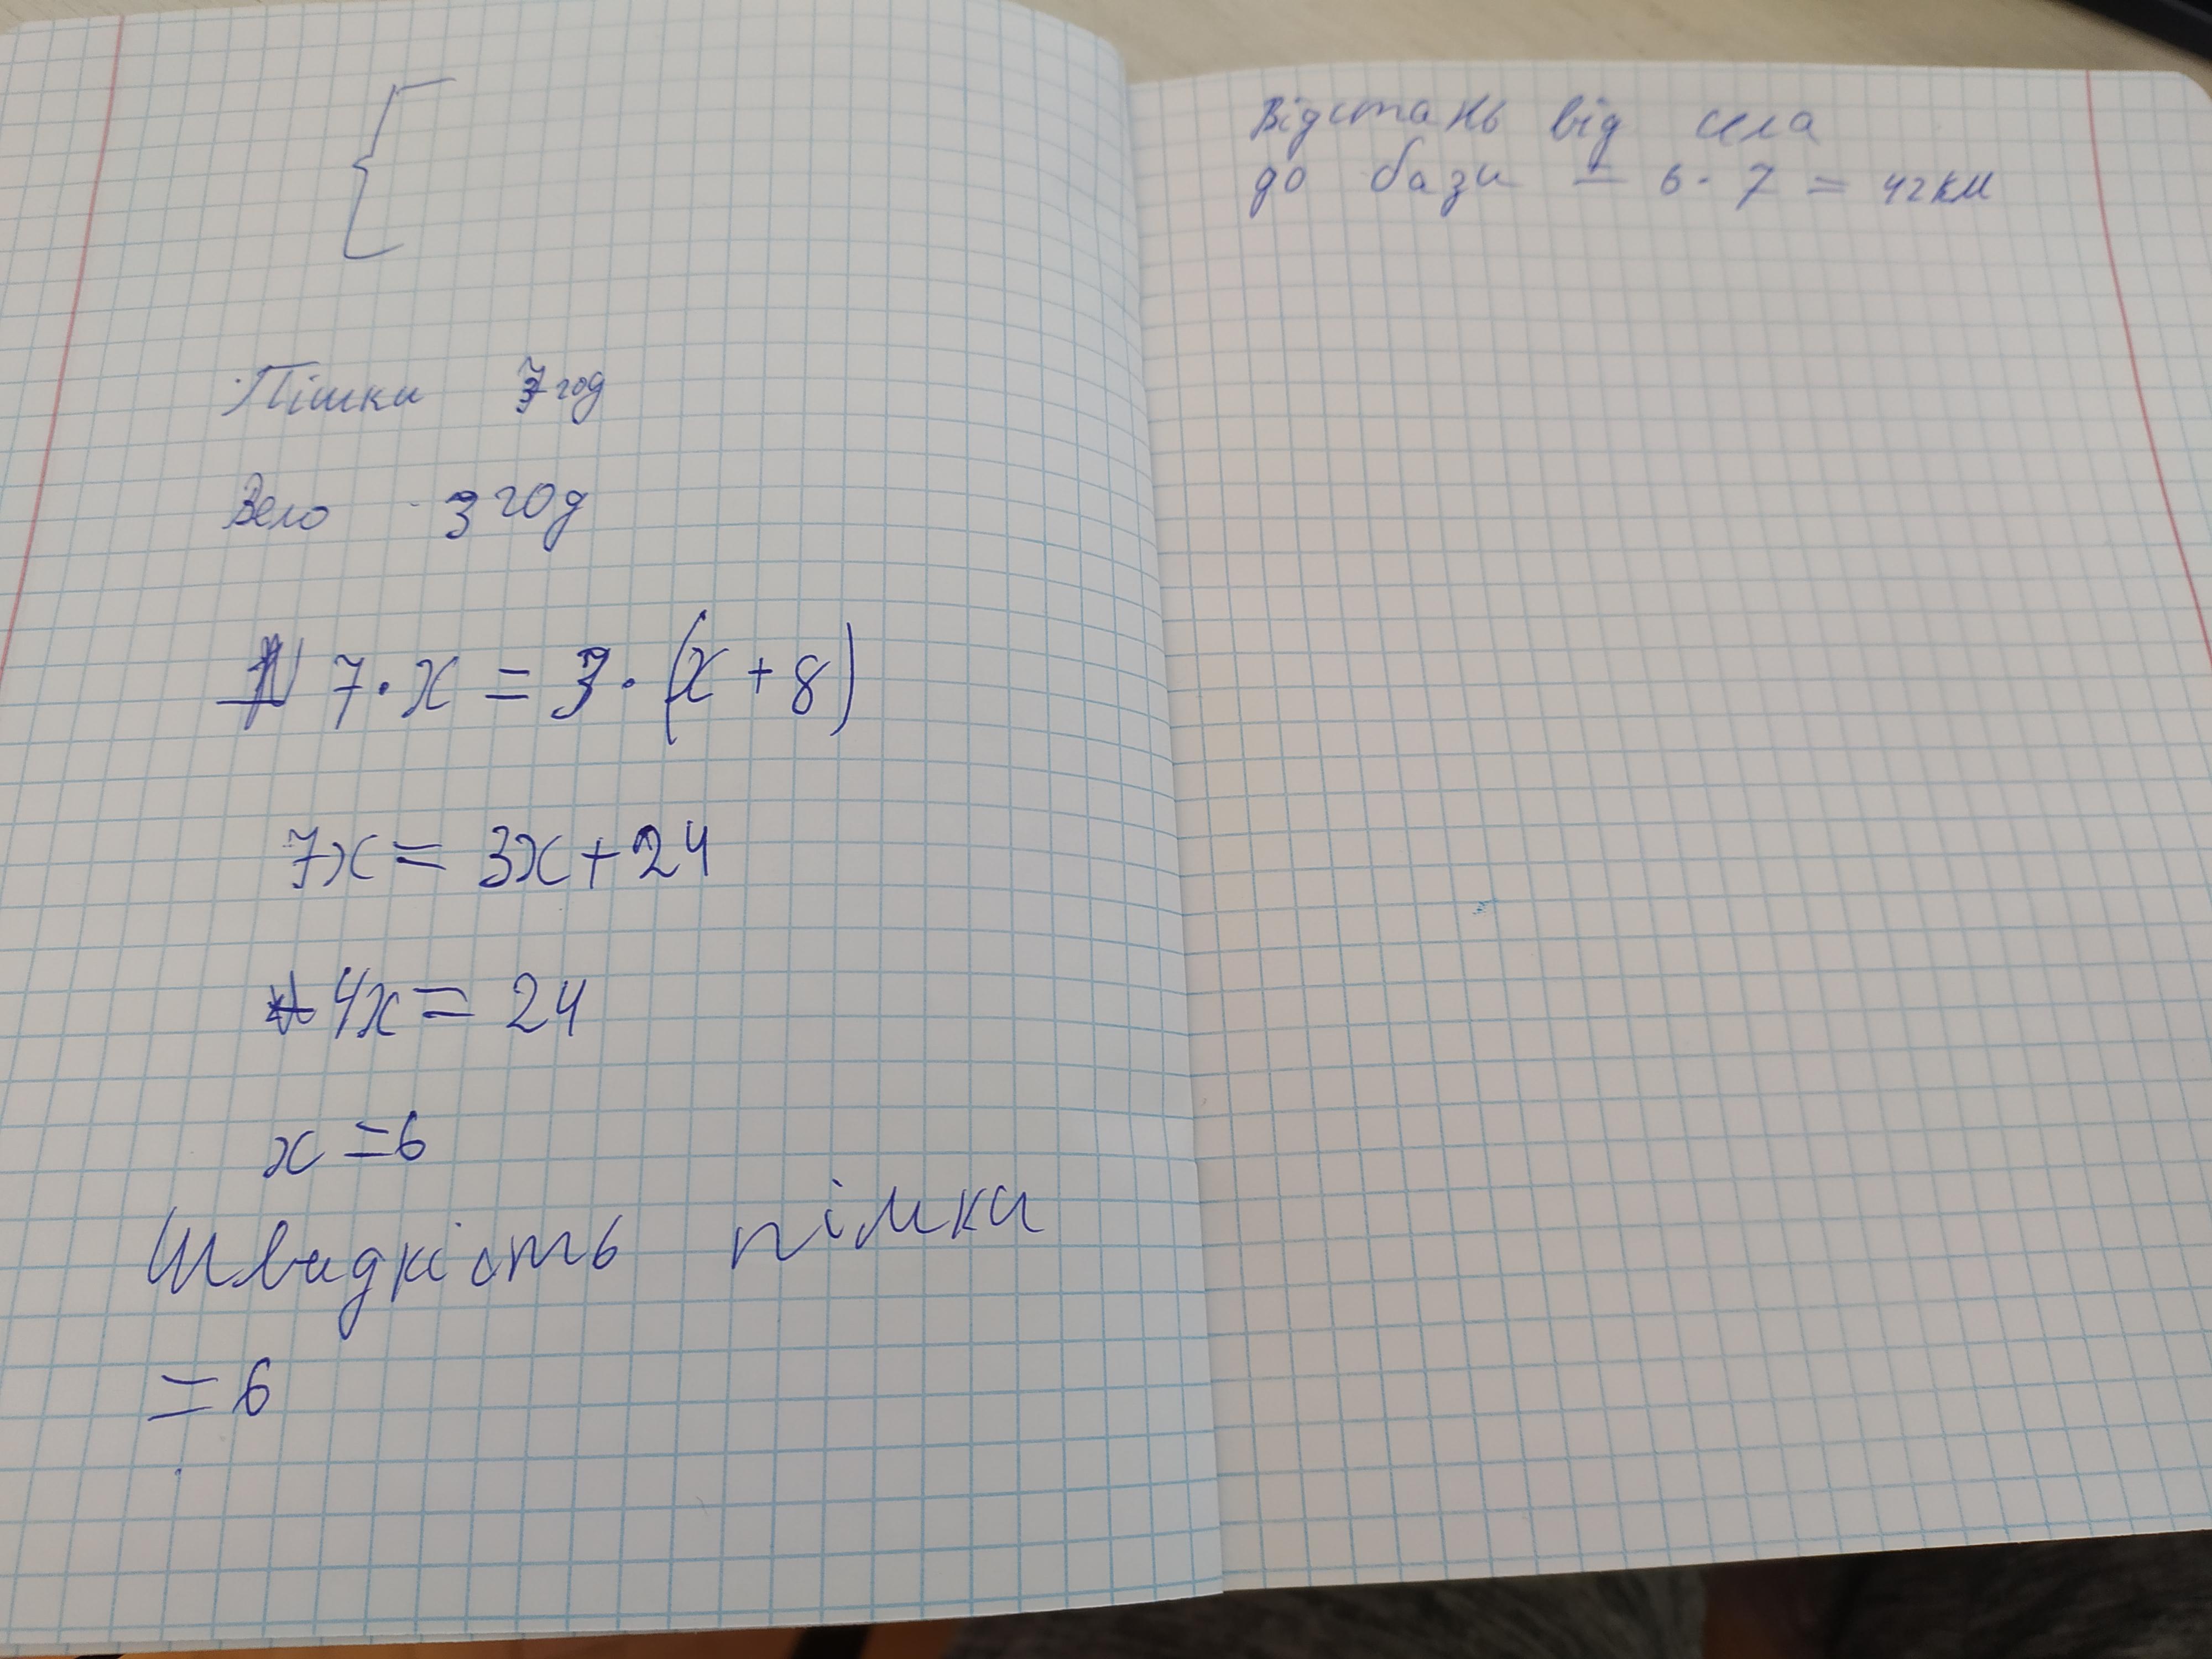 Пішки 7 год
Вело 3 год
7·x = 3·(x + 8)
7x = 3x + 24
4x = 24
x = 6
Швидкість пішки
= 6
Відстань від села
до бази = 6·7 = 42 км